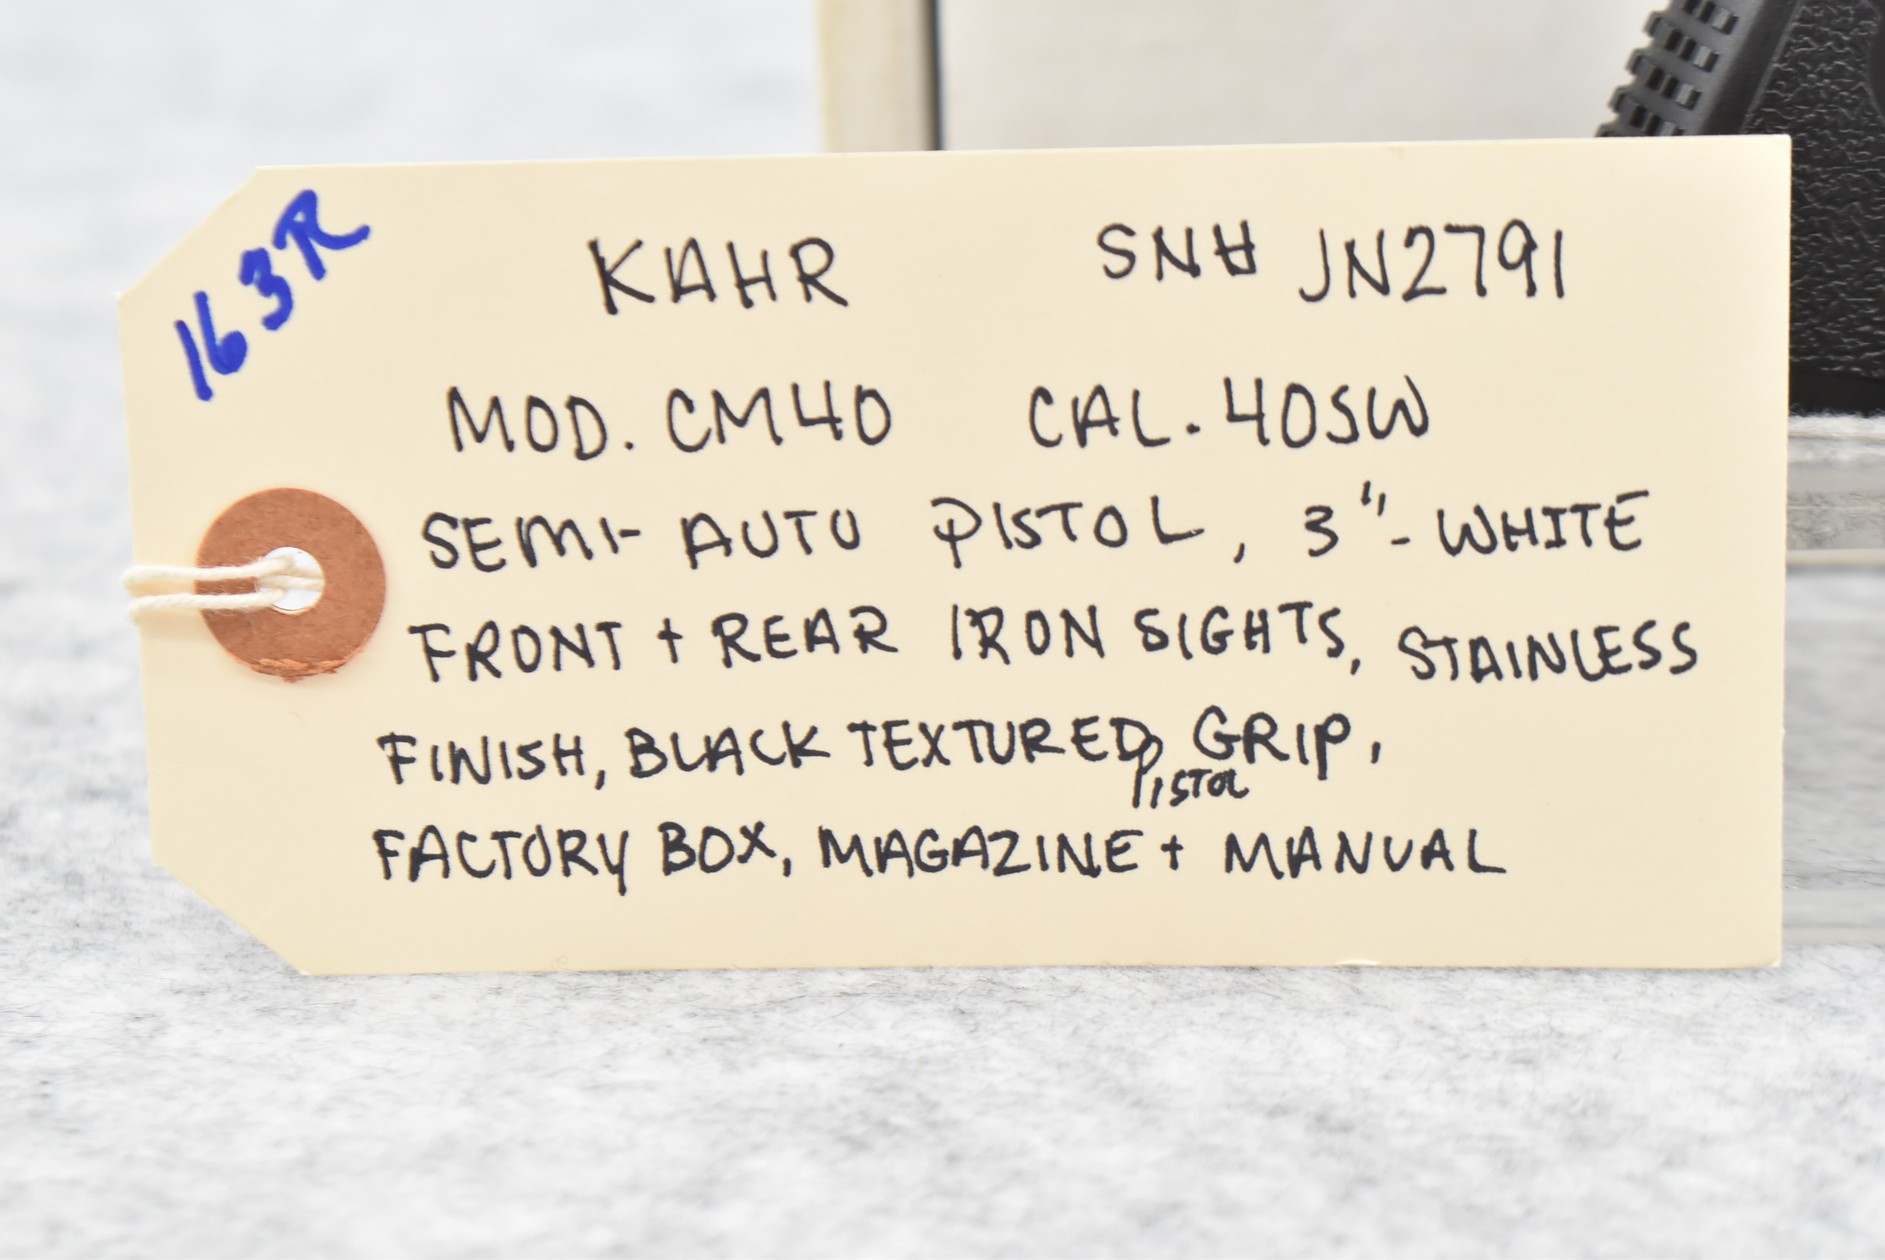 163R
KAHR SN# JN2791
MOD. CM40 CAL. 40SW
SEMI-AUTO PISTOL, 3"- WHITE
FRONT + REAR IRON SIGHTS, STAINLESS
FINISH, BLACK TEXTURED PISTOL GRIP,
FACTORY BOX, MAGAZINE + MANUAL